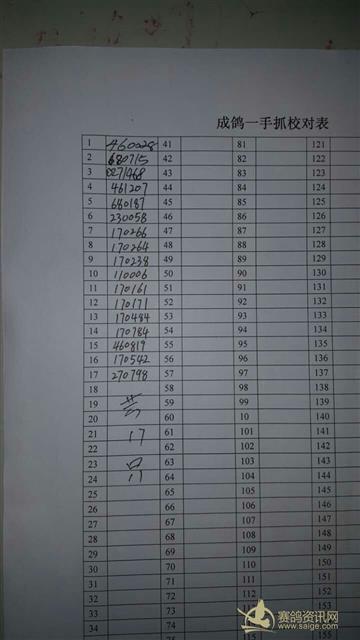 成鸽一手抓校对表
1 460028 41 81 121
2 680715 42 82 122
3 43 83 123
4 461207 44 84 124
5 680187 45 85 125
6 230058 46 86 126
7 170266 47 87 127
8 170264 48 88 128
9 170238 49 89 129
10 110006 50 90 130
11 170161 51 91 131
12 170171 52 92 132
13 170484 53 93 133
14 170784 54 94 134
15 460819 55 95 135
16 170542 56 96 136
17 270798 57 97 137
18 58 98 138
19 共 59 99 139
20 60 10 140
21 17 61 101 141
22 62 102 142
23 只 63 103 143
24 64 104 144
25 65 105 145
26 66 106 146
27 67 107 147
28 68 108 148
29 69 109 149
30 70 110 150
31 71 111 151
32 72 112 152
33 73 153
34 74
155
赛鸽资讯网
www.saige.com